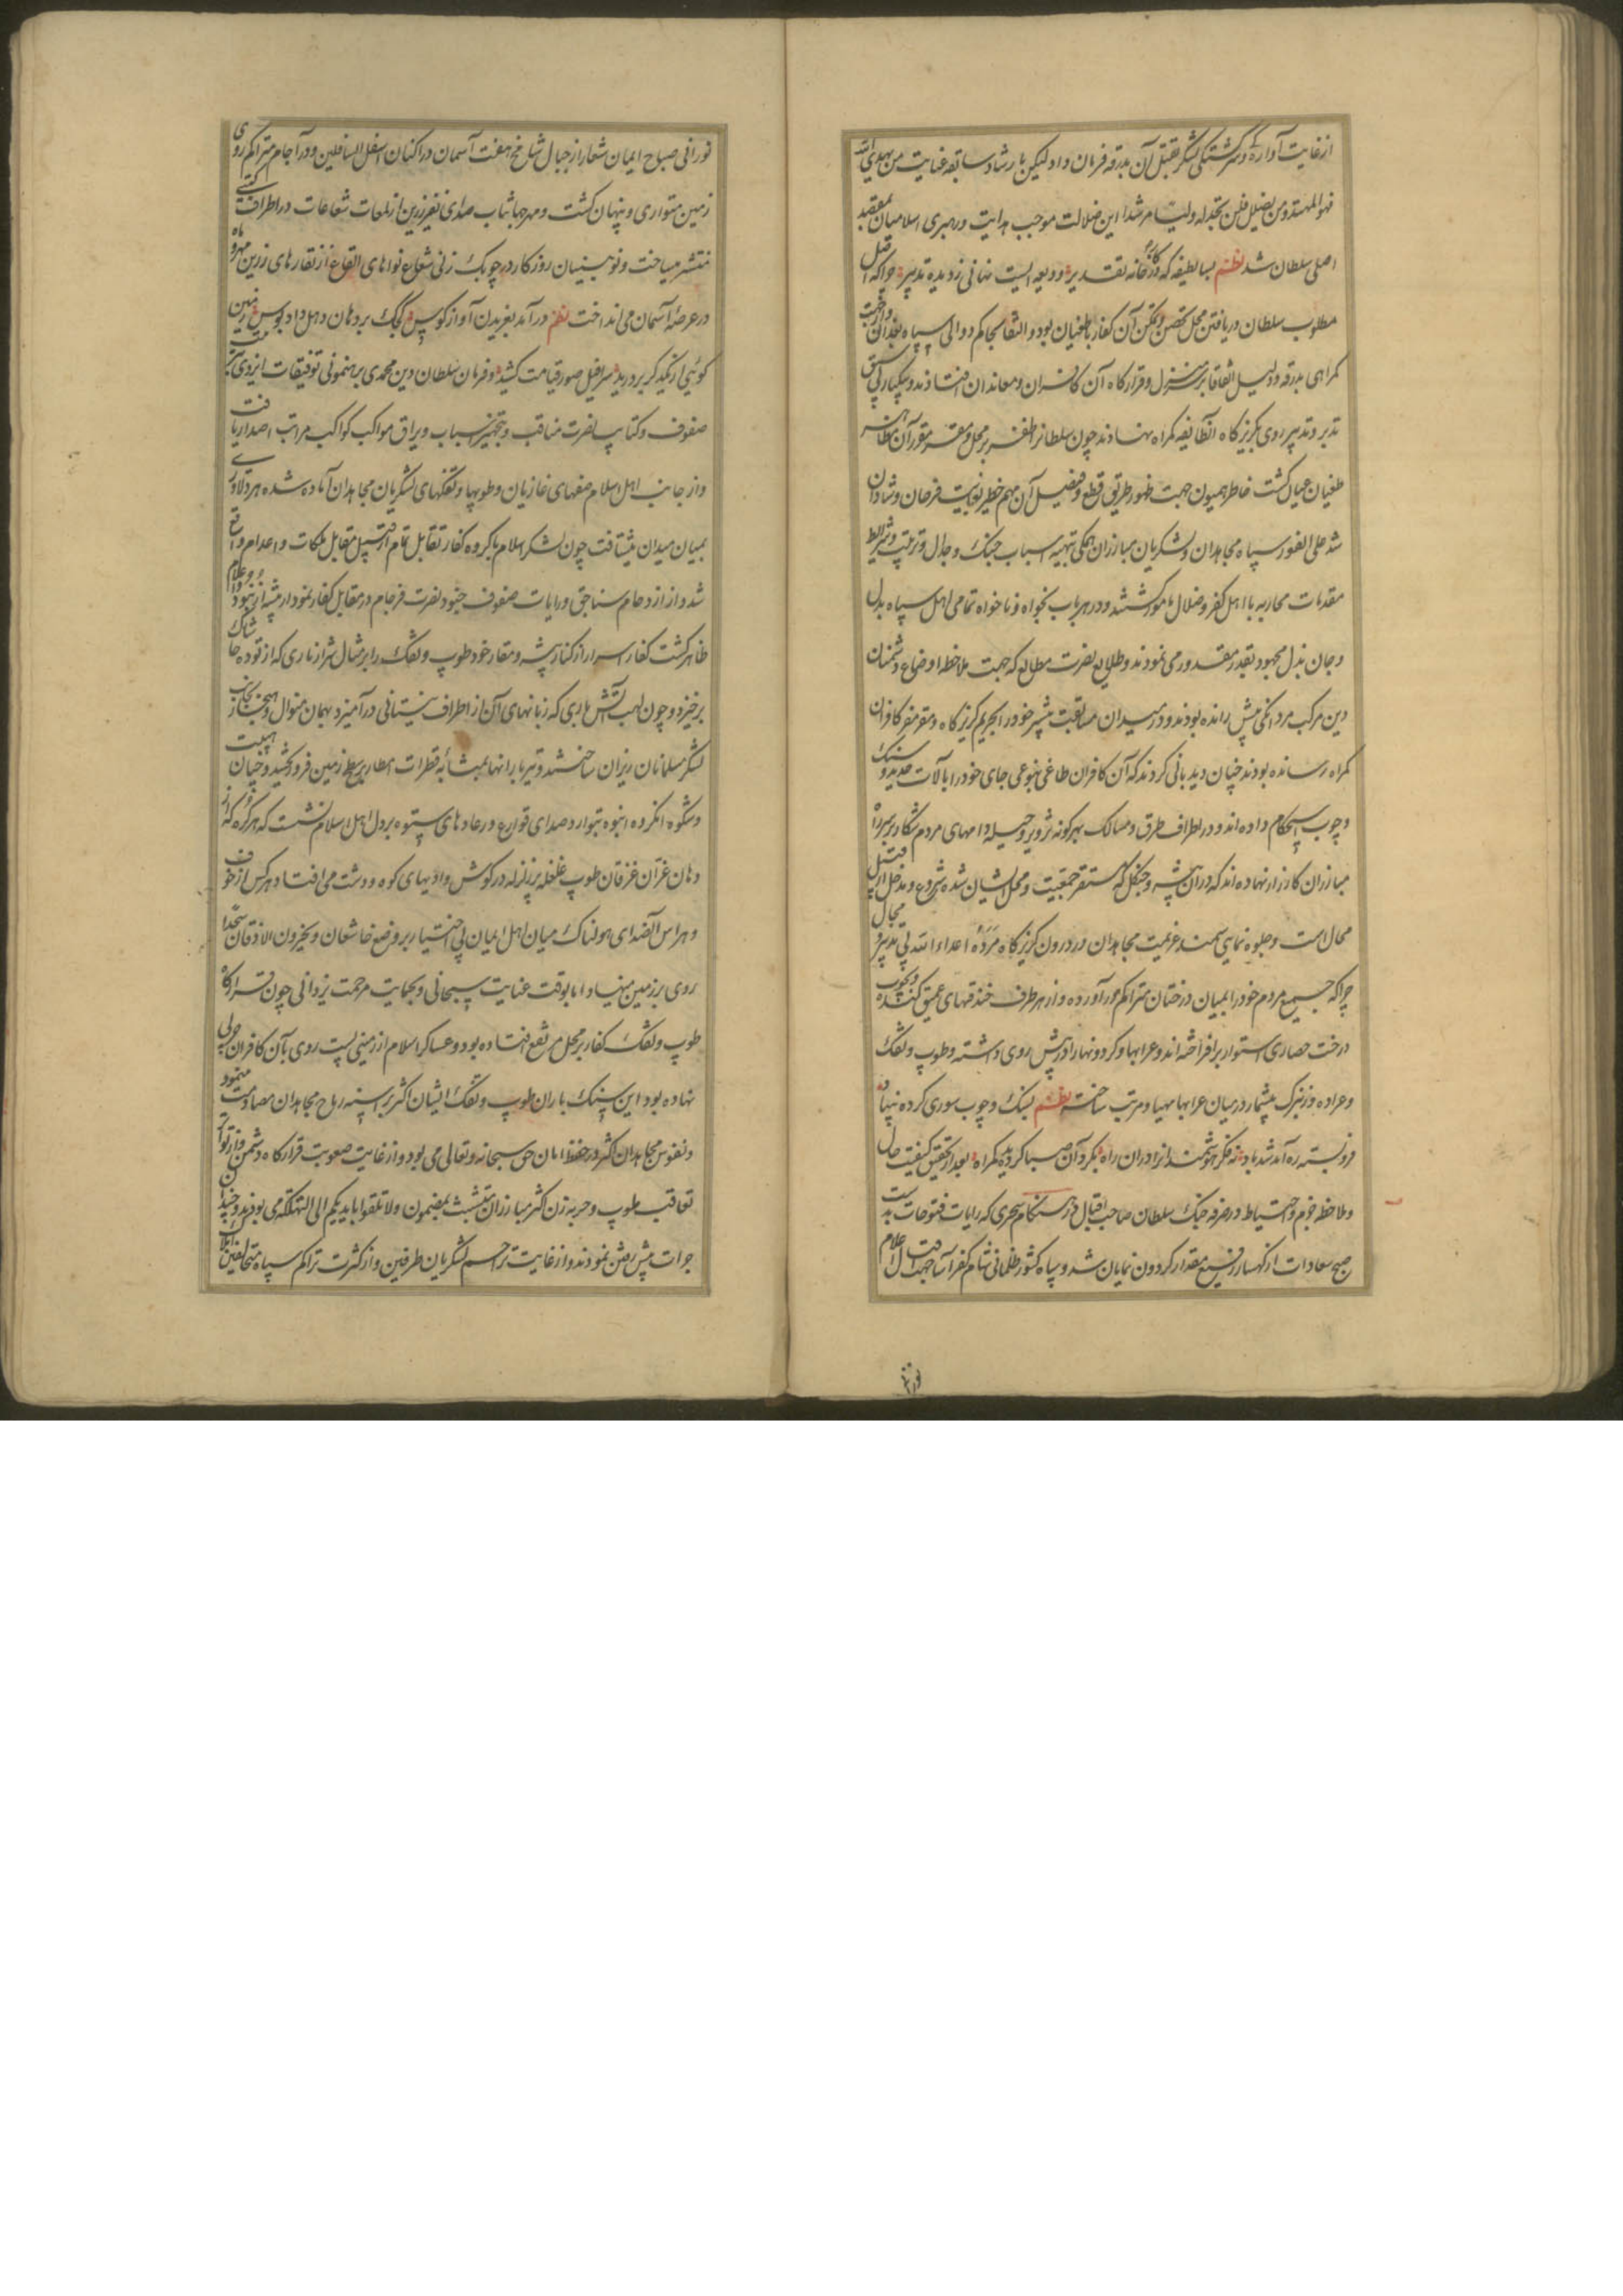 از غایت آوارهٔ و سرگشتگی لشکر بقتل آن بدرقه فرمان داد لیکن بارشاد سابقه عنایت من یهدی الله
فهو المهتد و من یضلل فلن تجد له ولیا مرشدا این ضلالت موجب هدایت و رهبری اسلامیان بمقصد
اصلی سلطان شد نظم بسا لطیفه که در کارخانه تقدیر ودیعه ایست نهانی ز دیده تدبیر چراکه اصل
مطلوب سلطان دریافتن محل تحصن و تمکن آن کفار با طغیان بود و اتفاقا بحاکم دوالی سپاه بغدان و از جهت
کمراهی بدرقه و دلیل اتفاقا بر سر منزل و قرارکاه آن کافران و معاندان افتادند و بیکبار بی سبق
تدبر و تدبیر روی بکریزکاه آن طایفه کمراه نهادند چون سلطانرا ظفر بر محل و مقر مقرر آن مظاهر
طغیان عیان کشت خاطر همیون جهت ظهور طریق قطع و فیصل آن مهم خطیر بغایت فرحان و شادان
شد علی الفور سپاه مجاهدان و لشکریان مبارزان همکی بتهیه اسباب جنک و جدال و ترتیب و شرایط
مقدمات محاربه با اهل کفر و ضلال مامور کشتند و در هر باب بخواه و ناخواه تمامی اهل سپاه بدل
و جان بذل مجهود بقدر مقدور می نمودند و طلایع نصرت مطالع که جهت ملاحظه اوضاع دشمنان
دین مرکب مردانکی پیش رانده بودند و در میدان مسابقت بیشتر خود را بحریم کریزکاه و مقر مفر کافران
کمراه رسانده بودند چنان دیدبانی کردند که آن کافران طاغی بنوعی جای خود را بآلات حدید و سنک
و چوب استحکام داده اند و در اطراف طرق و مسالک بهرکونه تزویر و حیله دامهای مردم شکار بر سر راه
مبارزان کارزار نهاده اند که در آن بیشه و جنکل که مستقر جمعیت و محل ایشان شده شروع و مدخل از قبیل
محال است و جلوه نمایی سمند عزیمت مجاهدان در درون کریزکاه مَرَدهٔ اعداء الله بی تدبیر مجال
چراکه جمیع مردم خود را بمیان درختان متراکم در آورده و از هر طرف خندقهای عمیق کنده و بچوب
درخت حصاری استوار برافراخته اند و عرابها و کردونها را در پیش روی داشته و طوپ و تفنک
و عراده و زنبرک بیشمار در میان عرابها مهیا و مرتب ساخته نظم بسنک و چوب سوری کرده بنیاد
فرو بسته ره آمد شد باد نه فکر هوشمندانرا در آن راه بکرد آن صبا کردیده کمراه بعد از تحقیق کیفیت حال
و ملاحظه حزم و احتیاط در صرفه جنک سلطان صاحب اقبال در هنکام سحری که رایات فتوحات بدست
صبح سعادات از کهسار رفیع مقدار کردون نمایان شد و سپاه کشور ظلمانی شام کفر آسا جهت اقبال اعلام
نورانی
نورانی صباح ایمان شعار از جبال شامخ هفت آسمان در اکنان اسفل السافلین و در آجام متراکم روی
زمین متواری و پنهان کشت و مهر جهانتاب صدای نفیر زرین از لمعات شعاعات در اطراف کیتی
منتشر میساخت و نوبتیان روزکار در چوبک زنی شعاع نواهای ایقاع از نقارهای زرین مهر و ماه
در عرصهٔ آسمان می انداخت نظم در آمد بغریدن آواز کوس کجک بر دهان دهل داد بوس زمین
کوئی از یکدکر بردرید سرافیل صور قیامت کشید و فرمان سلطان دین محمدی برهنمونی توفیقات ایزدی بترتیب
صفوف و کتایب نصرت مناقب و تجهیز اسباب و یراق مواکب کواکب مراتب اصدار یافت
و از جانب اهل اسلام صفهای غازیان و طوپها و تفنکهای لشکریان مجاهدان آماده شده هر دلاوری
بمیان میدان بشتافت چون لشکر اسلام با کروه کفار تقابل تمام از قبیل مقابل ملکات و اعدام واقع
شد و از ازدحام سناجق و رایات صفوف جنود نصرت فرجام در مقابل کفار نمودار بیشه از نمود و اعلام
ظاهر کشت کفار اسرار از کنار بیشه و مقار خود طوپ و تفنک را بر مثال شرار ناری که از توده خاشاک
برخیزد و چون لهب آتش باری که زبانهای آن از اطراف نیستانی درآمیزد بهمان منوال و هنجار بجانب
لشکر مسلمانان ریزان ساختند و تیر بارانها بمثابهٔ قطرات امطار بر سطح زمین فرو ریخته و چنان هیبت
و شکوه انکروه انبوه بتوارد صدای قوارع و رعادهای پستوه بر دل اهل اسلام نشست که هر کره که از
دهان غرّان غزقان طوپ غلغله پر زلزله در کوش وادیهای کوه و دشت می افتاد هر کس از خوف
و هراس آن صدای هولناک میان اهل ایمان بی اختیار بر وضع خاشعان و یخرون للاذقان سجدا
روی بر زمین مینهاد اما بوقت عنایت سبحانی و بحمایت مرحمت یزدانی چون قرارکاه
طوپ و تفنک کفار بر محل مرتفع افتاده بود و عساکر اسلام از زمینی پست روی بآن کافران جوی
نهاده بود این سنک باران طوپ و تفنک ایشان اکثر بر اسنه رماح مجاهدان مصادمت مینمود
و نفوس مجاهدان اکثر در حفظ امان حق سبحانه و تعالی می بود و از غایت صعوبت قرارکاه دشمن و از توآتر
تعاقب طوپ و حربه زن اکثر مبارزان متشبث بمضمون ولا تلقوا بایدیکم الی التهلکه می بودند و چندان
جرات پیش رفتن نمودند و از غایت تزاحم لشکریان طرفین و از کثرت تراکم سپاه متخالفین